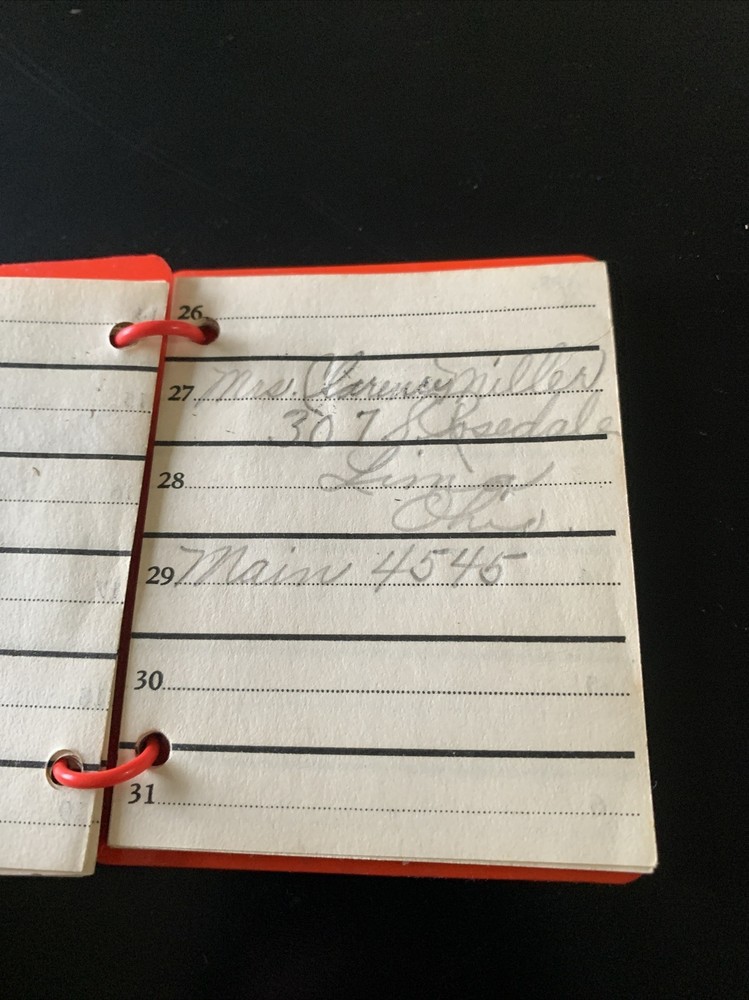 26
27 Mrs. Clarence Miller
307 S. Rosedale
28 Lima
Ohio.
29 Main 4545
30
31